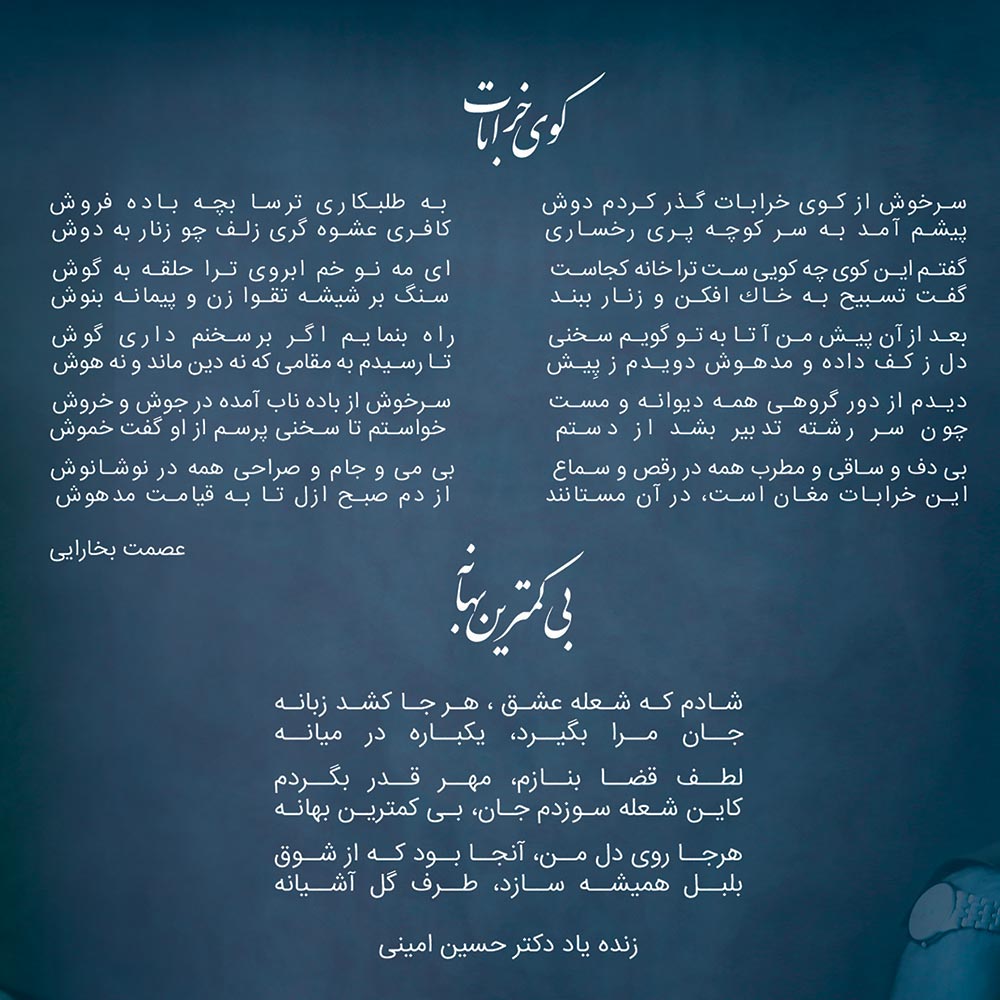 کوی خرابات
سرخوش از کوی خرابات گذر کردم دوش به طلبکاری ترسا بچه باده فروش
پیشم آمد به سر کوچه پری رخساری کافری عشوه گری زلف چو زنار به دوش
گفتم این کوی چه کویی ست ترا خانه کجاست ای مه نو خم ابروی ترا حلقه به گوش
گفت تسبیح به خاك افکن و زنار ببند سنگ بر شیشه تقوا زن و پیمانه بنوش
بعد از آن پیش من آ تا به تو گویم سخنی راه بنمایم اگر برسخنم داری گوش
دل ز کف داده و مدهوش دویدم ز پِیش تا رسیدم به مقامی که نه دین ماند و نه هوش
دیدم از دور گروهی همه دیوانه و مست سرخوش از باده ناب آمده در جوش و خروش
چون سر رشته تدبیر بشد از دستم خواستم تا سخنی پرسم از او گفت خموش
بی دف و ساقی و مطرب همه در رقص و سماع بی می و جام و صراحی همه در نوشانوش
این خرابات مغان است، در آن مستانند از دم صبح ازل تا به قیامت مدهوش
عصمت بخارایی
بی کمترین بهانه
شادم که شعله عشق ، هر جا کشد زبانه
جان مرا بگیرد، یکباره در میانه
لطف قضا بنازم، مهر قدر بگردم
کاین شعله سوزدم جان، بی کمترین بهانه
هرجا روی دل من، آنجا بود که از شوق
بلبل همیشه سازد، طرف گل آشیانه
زنده یاد دکتر حسین امینی